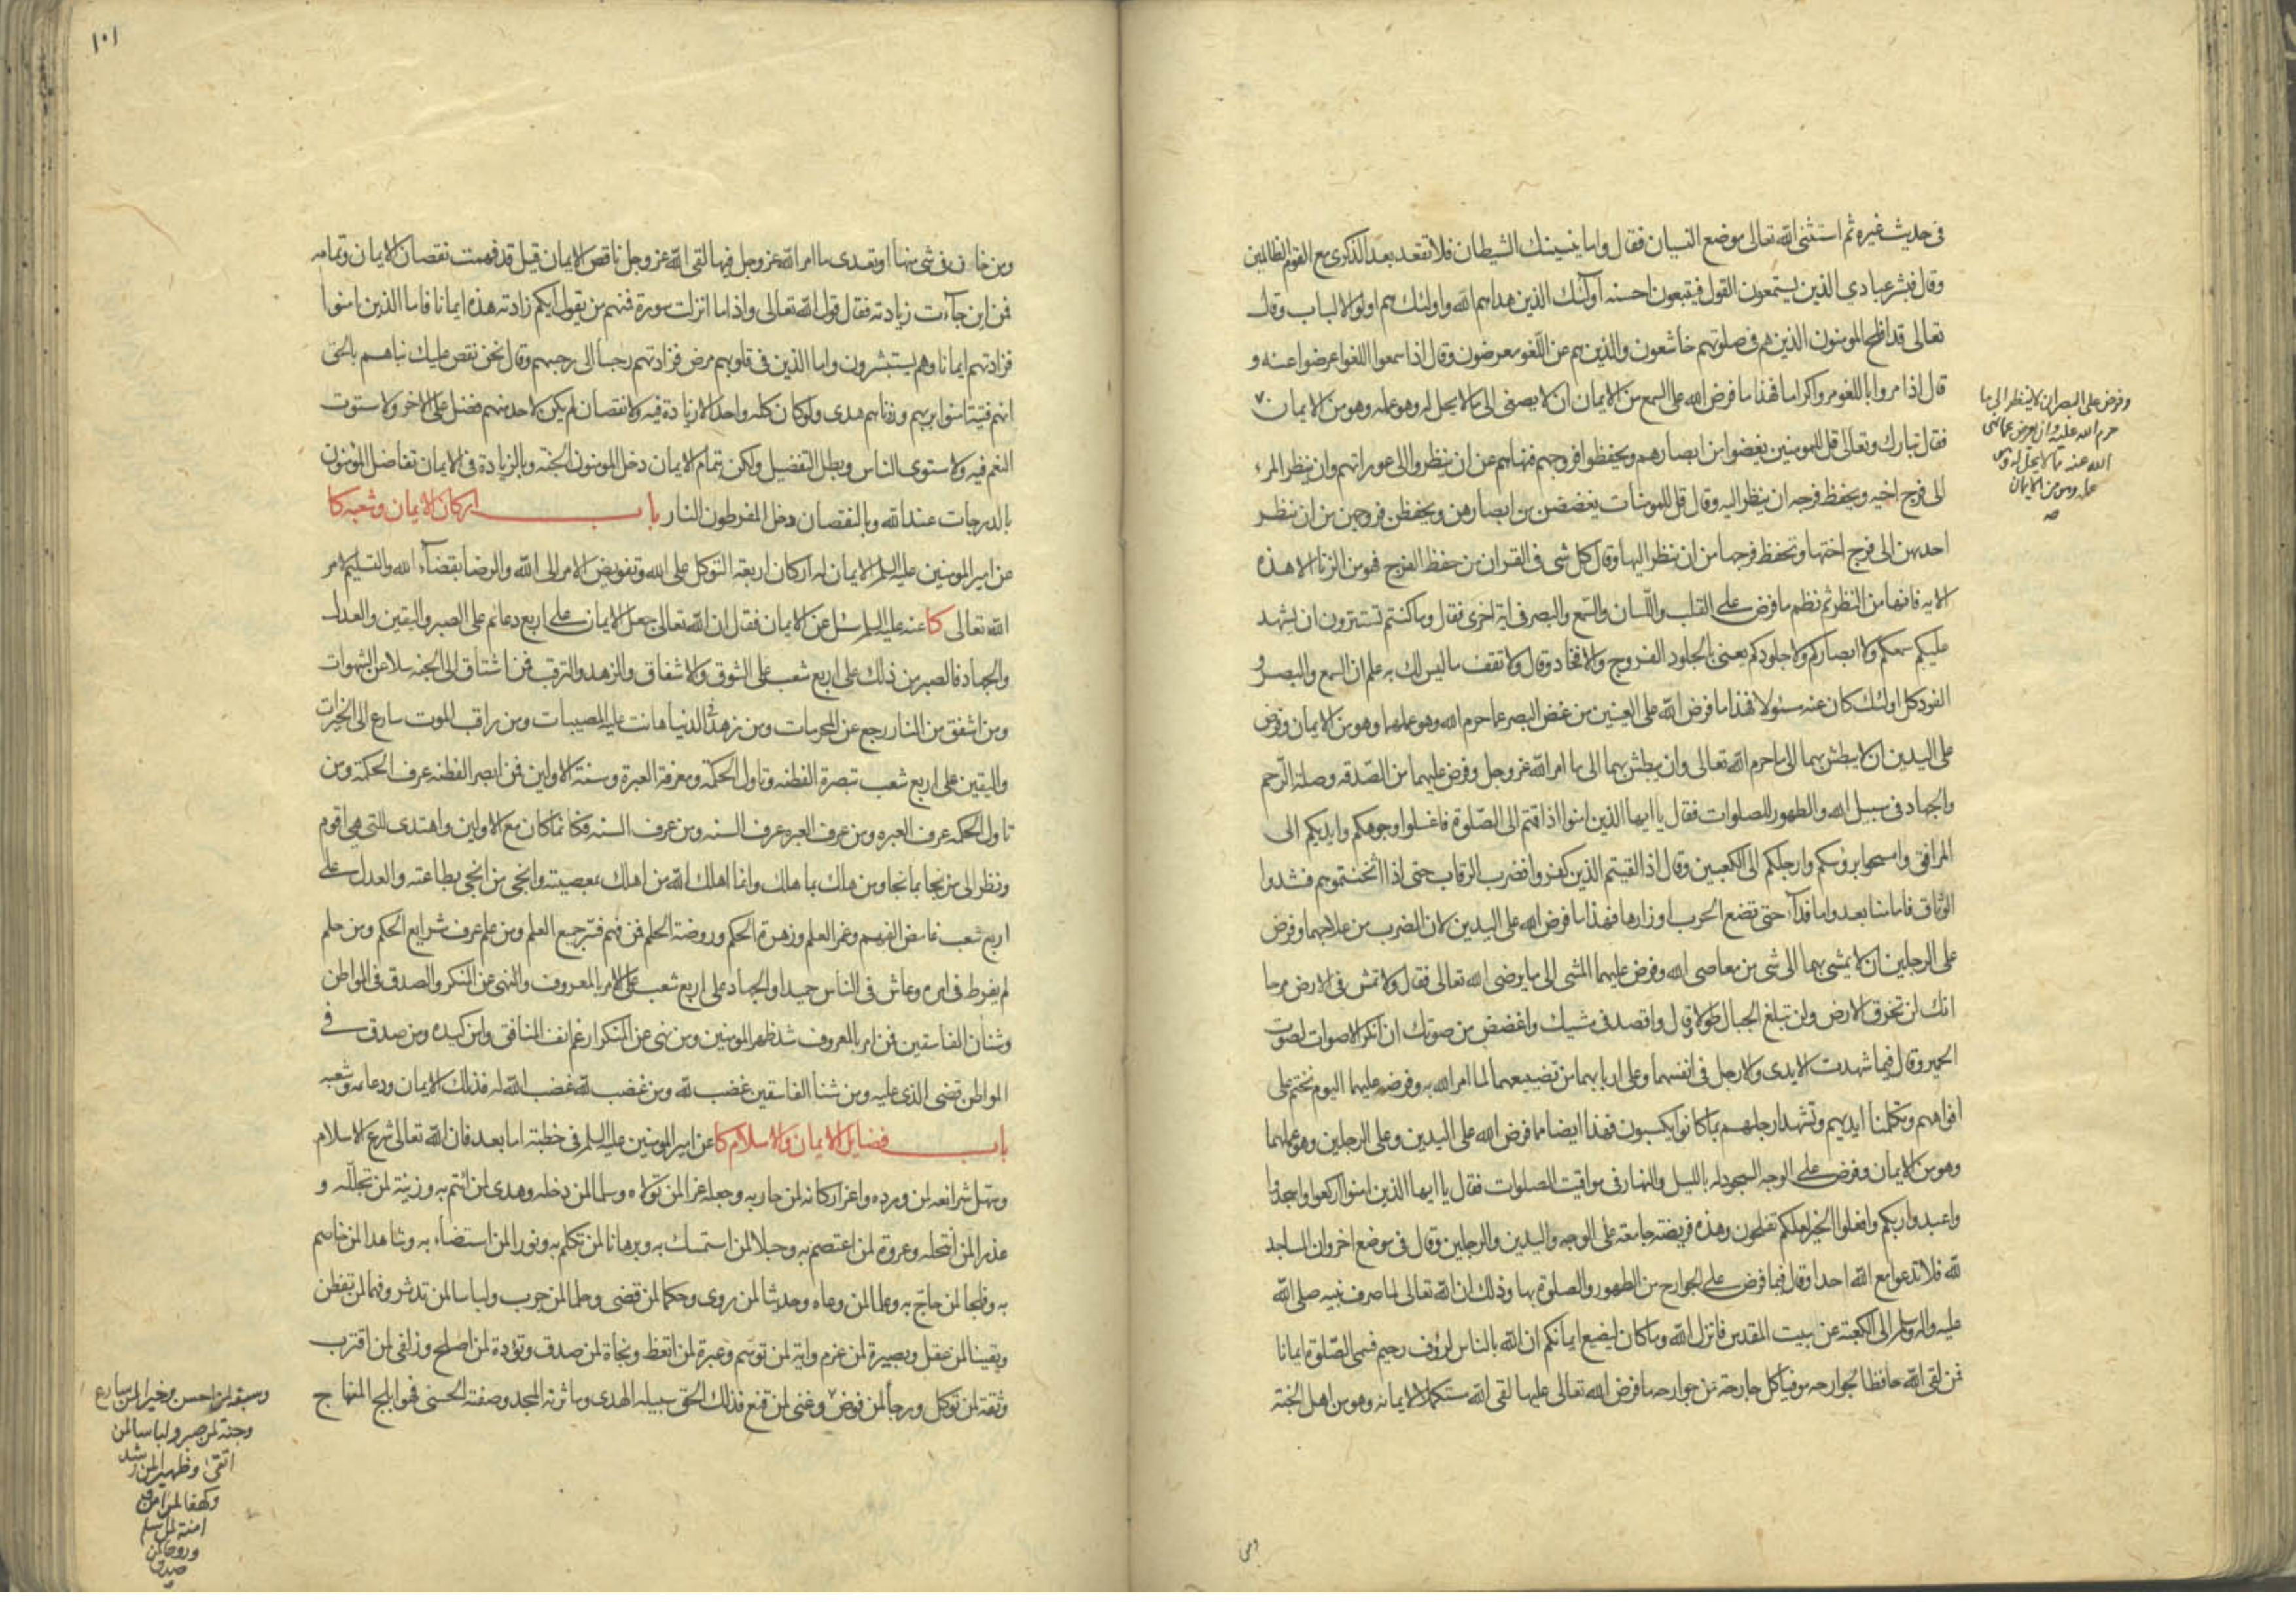 فى حديث غيره ثم استثنى الله تعالى موضع النسيان فقال واما ينسينك الشيطان فلا تقعد بعد الذكرى مع القوم الظالمين
وقال فبشر عبادى الذين يستمعون القول فيتبعون احسنه اولئك الذين هداهم الله واولئك هم اولوا الالباب وقال
تعالى قد افلح المومنون الذين هم فى صلوتهم خاشعون والذين هم عن اللغو معرضون وقال اذا سمعوا اللغو اعرضوا عنه و
قال اذا مروا باللغو مروا كراما فهذا ما فرض الله على السمع من الايمان ان لا يصغى الى ما لا يحل له وهو عمله وهو من الايمان
وفرض على البصر ان لا ينظر الى ما
حرم الله عليه وان يعرض عما نهى
الله عنه مما لا يحل له وهو
عمله وهو من الايمان
صه
فقال تبارك وتعالى قل للمومنين يغضوا من ابصارهم ويحفظوا فروجهم فنهاهم عن ان ينظروا الى عوراتهم وان ينظر المرء
الى فرج اخيه ويحفظ فرجه ان ينظر اليه وقال قل للمومنات يغضضن من ابصارهن ويحفظن فروجهن من ان ينظر
احديهن الى فرج اختها وتحفظ فرجها من ان ينظر اليها وقال كل شى فى القران من حفظ الفرج فهو من الزنا الا هذه
الايه فانها من النظر ثم نظم ما فرض على القلب واللسان والسمع والبصر فى اية اخرى فقال وما كنتم تستترون ان يشهد
عليكم سمعكم ولا ابصاركم ولا جلودكم يعنى بالجلود الفروج والافخاذ وقال ولا تقف ما ليس لك به علم ان السمع والبصر و
الفود كل اولئك كان عنه مسئولا فهذا ما فرض الله على العينين من غض البصر عما حرم الله وهو عملهما وهو من الايمان وفرض
على اليدين ان لا يبطش بهما الى ما حرم الله تعالى وان يبطش بهما الى ما امر الله عز وجل وفرض عليهما من الصدقه وصلة الرحم
والجهاد فى سبيل الله والطهور للصلوات فقال يا ايها الذين امنوا اذا قمتم الى الصلوة فاغسلوا وجوهكم وايديكم الى
المرافق وامسحوا برؤسكم وارجلكم الى الكعبين وقال اذا لقيتم الذين كفروا فضرب الرقاب حتى اذا اثخنتموهم فشدوا
الوثاق فاما منا بعد واما فداء حتى تضع الحرب اوزارها فهذا ما فرض الله على اليدين لان الضرب من علاجهما وفرض
على الرجلين ان لا يمشى بهما الى شى من معاصى الله وفرض عليهما المشى الى ما يرضى الله تعالى فقال ولا تمش فى الارض مرحا
انك لن تخرق الارض ولن تبلغ الجبال طولا وقال واقصد فى مشيك واغضض من صوتك ان انكر الاصوات لصوت
الحمير وقال فيما شهدت الايدى والارجل فى انفسهما وعلى اربابهما من تضييعهما لما امر الله به وفرضه عليهما اليوم نختم على
افواههم وتكلمنا ايديهم وتشهد ارجلهم بما كانوا يكسبون فهذا ايضا مما فرض الله على اليدين وعلى الرجلين وهو عملهما
وهو من الايمان وفرض على الوجه السجود له بالليل والنهار فى مواقيت الصلوات فقال يا ايها الذين امنوا اركعوا واسجدوا
واعبدوا ربكم وافعلوا الخير لعلكم تفلحون وهذه فريضة جامعة على الوجه واليدين والرجلين وقال فى موضع اخر وان المساجد
لله فلا تدعوا مع الله احدا وقال فيما فرض على الجوارح من الطهور والصلوة بها وذلك ان الله تعالى لما صرف نبيه صلى الله
عليه واله وسلم الى الكعبة عن بيت المقدس فانزل الله وما كان ليضيع ايمانكم ان الله بالناس لرؤف رحيم فسمى الصلوة ايمانا
فمن لقى الله حافظا لجوارحه موفيا كل جارحة من جوارحه ما فرض الله تعالى عليها لقى الله مستكملا لايمانه وهو من اهل الجنة
ومن
١٠١
ومن خان فى شى منها او تعدى ما امر الله عز وجل فيها لقى الله عز وجل ناقص الايمان قيل قد فهمت نقصان الايمان وتمامه
فمن اين جاءت زيادته فقال قول الله تعالى واذا ما انزلت سورة فمنهم من يقول ايكم زادته هذه ايمانا فاما الذين امنوا
فزادتهم ايمانا وهم يستبشرون واما الذين فى قلوبهم مرض فزادتهم رجسا الى رجسهم وقال نحن نقص عليك نباهم بالحق
انهم فتية امنوا بربهم وزدناهم هدى ولو كان كله واحدا لا زيادة فيه ولا نقصان لم يكن لاحد منهم فضل على الاخر ولاستوت
النعم فيه ولاستوى الناس وبطل التفضيل ولكن بتمام الايمان دخل المومنون الجنة وبالزيادة فى الايمان تفاضل المؤمنون
بالدرجات عند الله وبالنقصان دخل المفرطون النار باب اركان الايمان وشعبه كا
عن امير المومنين عليه السلم الايمان له اركان اربعة التوكل على الله وتفويض الامر الى الله والرضا بقضاء الله والتسليم لامر
الله تعالى كا عنه عليه السلم سئل عن الايمان فقال ان الله تعالى جعل الايمان على اربع دعائم على الصبر واليقين والعدل
والجهاد فالصبر من ذلك على اربع شعب على الشوق والاشفاق والزهد والترقب فمن اشتاق الى الجنه سلا عن الشهوات
ومن اشفق من النار رجع عن المحرمات ومن زهد فى الدنيا هانت عليه المصيبات ومن راقب الموت سارع الى الخيرات
واليقين على اربع شعب تبصرة الفطنه وتاول الحكمة ومعرفة العبرة وسنة الاولين فمن ابصر الفطنه عرف الحكمة ومن
تاول الحكمه عرف العبره ومن عرف العبره عرف السنه ومن عرف السنه فكانما كان مع الاولين واهتدى للتى هى اقوم
ونظر الى من نجا بما نجا ومن هلك بما هلك وانما اهلك الله من اهلك بمعصيته وانجى من انجى بطاعته والعدل على
اربع شعب غامض الفهم وغمر العلم وزهرة الحكم وروضة الحلم فمن فهم فسر جميع العلم ومن علم عرف شرايع الحكم ومن حلم
لم يفرط فى امره وعاش فى الناس حميدا والجهاد على اربع شعب على الامر بالمعروف والنهى عن المنكر والصدق فى المواطن
وشنان الفاسقين فمن امر بالمعروف شد ظهر المومنين ومن نهى عن المنكر ارغم انف المنافق وامن كيده ومن صدق فى
المواطن قضى الذى عليه ومن شنا الفاسقين غضب لله ومن غضب لله غضب الله له فذلك الايمان ودعامه وشعبه
باب فضايل الايمان والاسلام كا عن امير المومنين عليه السلم فى خطبة اما بعد فان الله تعالى شرع الاسلام
وسهل شرائعه لمن ورده واعز اركانه لمن حاربه وجعله عزا لمن تولاه وسلما لمن دخله وهدى لمن ائتم به وزينة لمن تجلله و
عذرا لمن انتحله وعروة لمن اعتصم به وحبلا لمن استمسك به وبرهانا لمن تكلم به ونورا لمن استضاء به وشاهدا لمن خاصم
به وفلجا لمن حاج به وعلما لمن وعاه وحديثا لمن روى وحكما لمن قضى وحلما لمن جرب ولباسا لمن تدثر وفهما لمن تفطن
ويقينا لمن عقل وبصيرة لمن عزم واية لمن توسم وعبرة لمن اتعظ ونجاة لمن صدق وتؤدة لمن اصلح وزلفى لمن اقترب
وثقة لمن توكل ورجاء لمن فوض وغنى لمن قنع فذلك الحق سبيله الهدى وماثرته المجد وصفته الحسنى فهو ابلج المنهاج
وسبقة لمن احسن وخيرا لمن سارع
وجنة لمن صبر ولباسا لمن
اتقى وظهيرا لمن رشد
وكهفا لمن امن و
امنة لمن اسلم
وروحا لمن
صدق